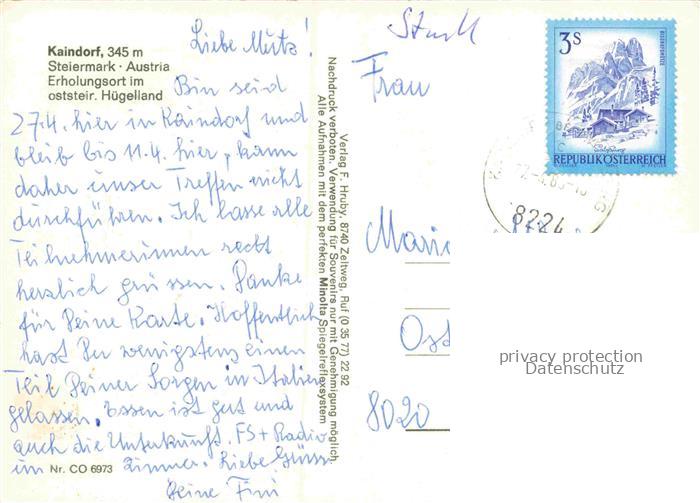 Kaindorf, 345 m
Steiermark · Austria
Erholungsort im
oststeir. Hügelland
Liebe Mutz!
Bin seid
27.4. hier in Kaindorf und
bleib bis 11.4. hier, kann
daher unser Treffen nicht
durchführen. Ich lasse alle
Teilnehmerinnen recht
herzlich grüssen. Danke
für Deine Karte. Hoffentlich
hast Du wenigstens einen
Teil Deiner Sorgen in Italien
gelassen. Essen ist gut und
auch die Unterkunft. FS + Radio
im Zimmer. Liebe Grüsse
Deine Fini
Nr. CO 6973
Verlag F. Hruby, 8740 Zeltweg, Ruf (0 35 77) 22 92
Nachdruck verboten. Verwendung für Souvenirs nur mit Genehmigung möglich
Alle Aufnahmen mit dem perfekten Minolta Spiegelreflexsystem
Frau
Mari
Ost
8020
3 S
REPUBLIK ÖSTERREICH
8224
privacy protection
Datenschutz